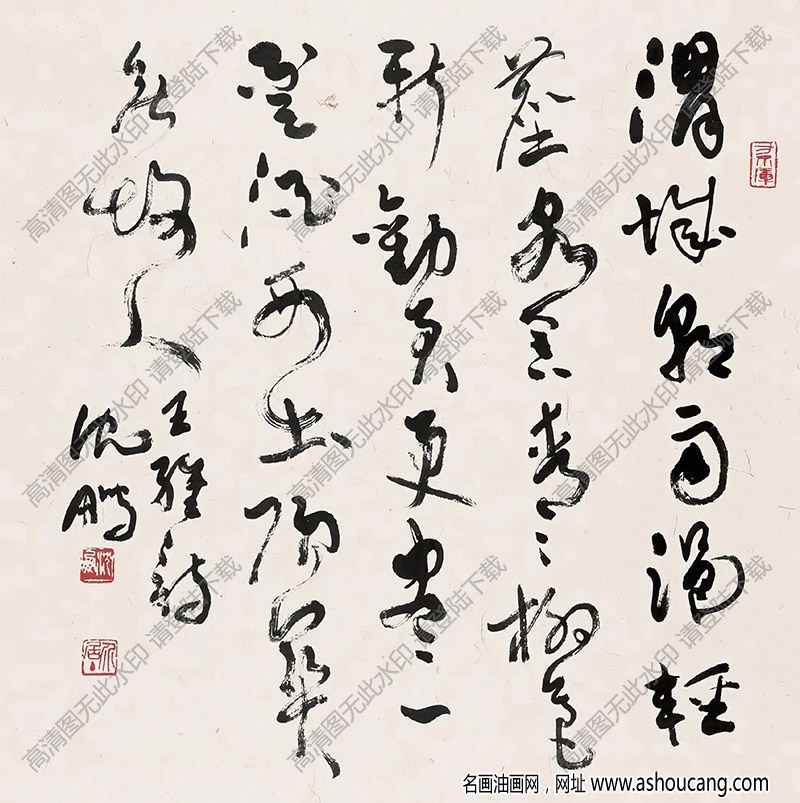 渭城朝雨浥輕
塵客舍青〻柳色
新勸君更盡一
盃酒西出陽關
無故人
王維詩
沈鵬
高清图无此水印 请登陆下载
名画油画网，网址 www.ashoucang.com